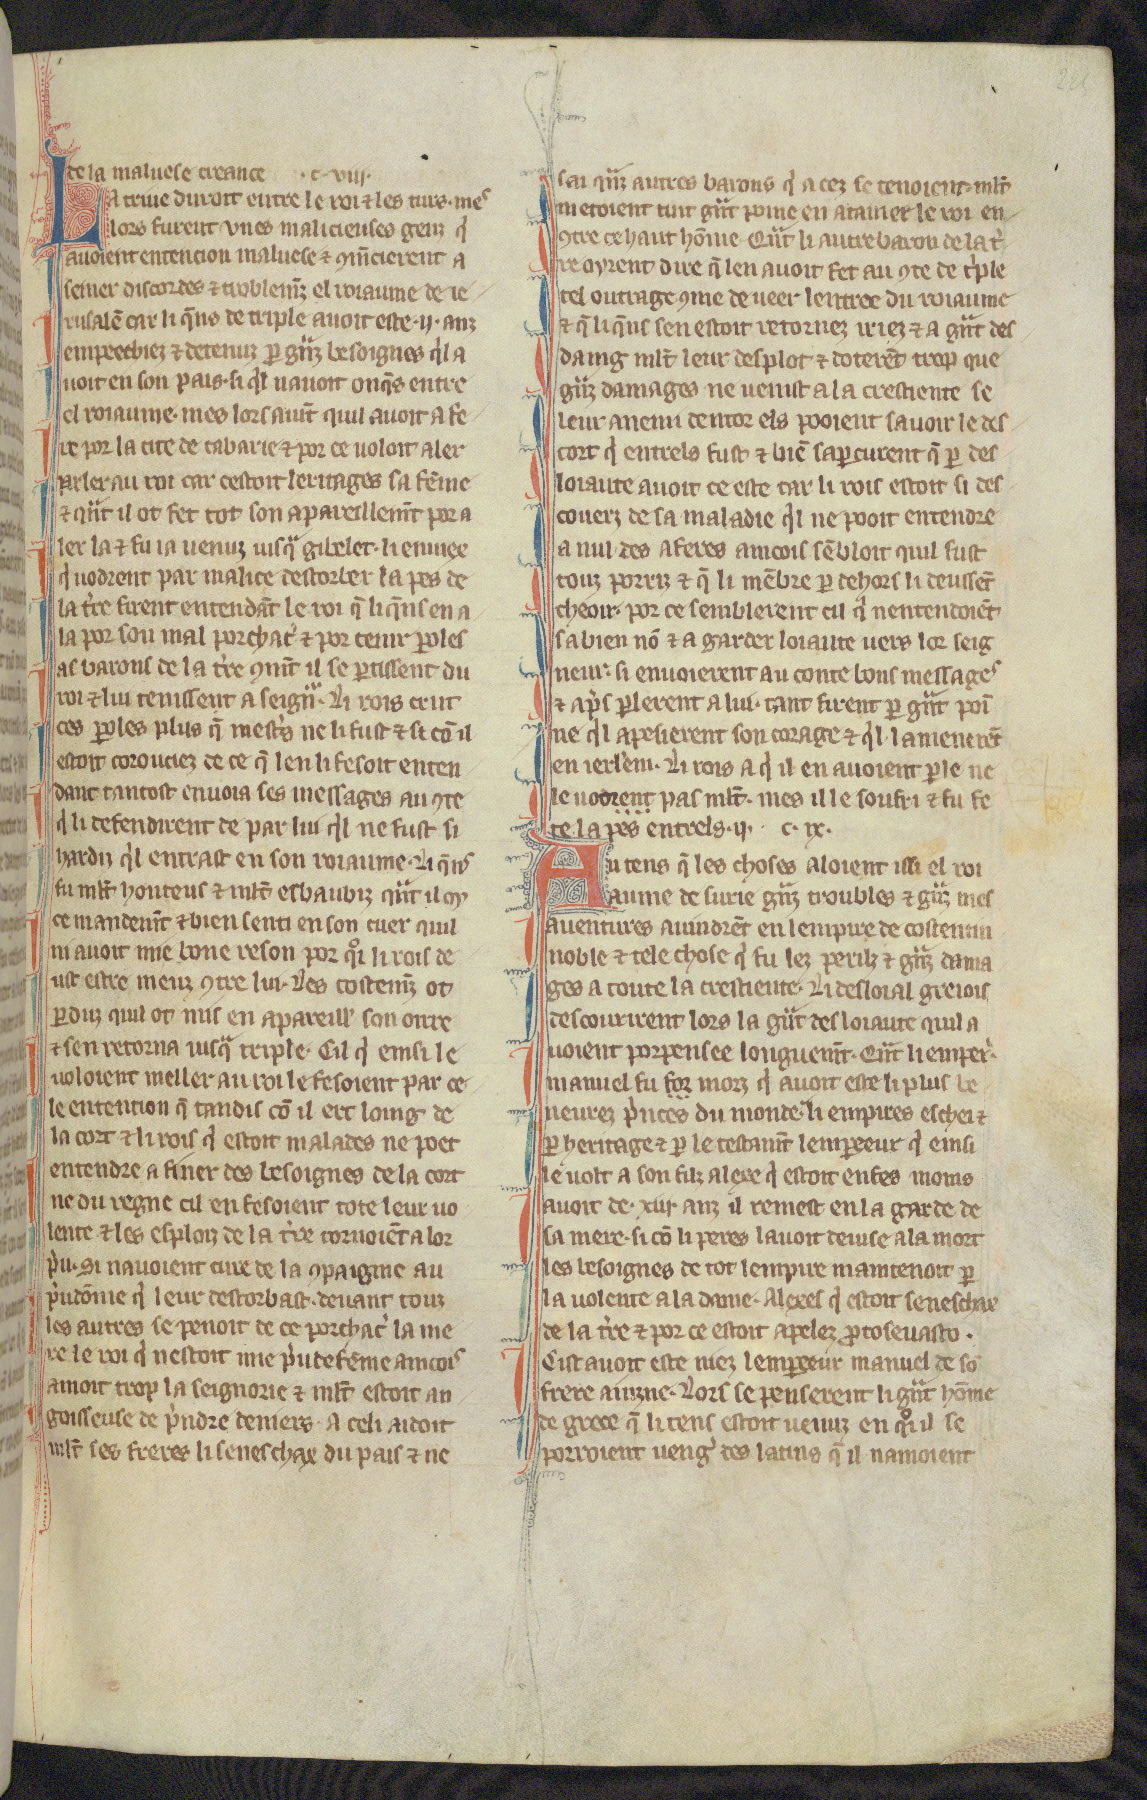 te la maluese creance · c · viii ·
La triue duroit entre le roi ⁊ les turs · mes
lors furent vnes malicieuses genz q̓
auoient entencion maluese ⁊ ꝯm̄cierent a
semer discordes ⁊ troblem̄z el roiaume de ie
rusalē car li q̄ns de triple auoit este · ij · anz
empeechiez ⁊ detenuz ꝑ gͣ̄z besoignes q̓l a
uoit en son pais · si q̓l nauoit onq̄s entre
el roiaume · mes lors auīt quil auoit a fe
re por la cite de tabarie ⁊ por ce uoloit aler
parler au roi car cestoit leritages sa fēme
⁊ qͣ̄t il ot fet tot son apareillem̄t por a
ler la ⁊ fu ia uenuz iusqͣ gibelet · li enuiee
q̓ uodrent par malice destorber la pes de
la t̓re firent entendāt le roi q̄ li q̄ns en a
la por son mal porchac̓ ⁊ por tenir ꝑoles
as barons de la t̓re ꝯmīt il se ꝑtissent du
roi ⁊ lui tenissent a seignͬ · Li rois crut
ces ꝑoles plus q̄ mest̓s ne li fust ⁊ si cō il
estoit corouciez de ce q̄ len li fesoit enten
dant tantost enuoia ses messages au ꝯte
q̓ li defendirent de par lui q̓l ne fust si
hardiz q̓l entrast en son roiaume · Li q̄ns
fu ml̄t honteus ⁊ ml̄t esbaubiz qͣ̄t il oy
ce mandem̄t ⁊ bien senti en son cuer quil
ni auoit mie bone reson por qͦi li rois de
ust estre meuz ꝯtre lui · Les costem̄z ot
ꝑduz quil ot mis en apareill̓ son oirre
⁊ sen retorna iusqͣ triple · Cil q̓ einsi le
uoloient meller au roi le fesoient par ce
le entention q̄ tandis cō il ert loing de
la cort ⁊ li rois q̓ estoit malades ne poet
entendre a finer des besoignes de la cort
ne du regne cil en fesoient tote leur uo
lente ⁊ les esploiz de la t̓re tornoiēt a lor
p̓u · Si nauoient cure de la ꝯpaignie au
p̓udōme q̓ leur destorbast · deuant touz
les autres se penoit de ce porchac̓ la me
re le roi q̓ nestoit mie p̓ude fēme aincois
amoit trop la seignorie ⁊ ml̄t estoit an
goisseuse de p̓ndre deniers · A celi aidoit
ml̄t ses freres li seneschax du pais ⁊ ne
sai qͣ̄z autres barons q̓ a cez se tenoient · ml̄t
metoient tuit gͣ̄t poine en atainer le roi en
ꝯtre ce haut hōme · Qͣ̄t li autre baron de la t̓
re oyrent dire q̄ len auoit fet au ꝯte de t̓ple
tel outrage ꝯme de ueer lentree du roiaume
⁊ q̄ li q̄ns sen estoit retornez iriez ⁊ a gͣ̄t des
daing ml̄t leur desplot ⁊ doterēt trop que
gͣ̄z damages ne uenist a la crestiente se
leur anemi dentor els pooient sauoir le des
cort q̓ entrels fust ⁊ biē saꝑcurent q̄ ꝑ des
loiaute auoit ce este car li rois estoit si des
couerz de sa maladie q̓l ne pooit entendre
a nul des aferes aincois sēbloit quil fust
touz porriz ⁊ q̄ li mēbre ꝑ dehors li deussēt
cheoir · por ce semblerent cil q̓ nentendoiēt
sa bien nō ⁊ a garder loiaute uers lor seig
neur · si enuoierent au conte bons messages
⁊ ap̓s ꝑlerent a lui · tant firent ꝑ gͣ̄t poi
ne q̓l apesierent son corage ⁊ q̓l · lamenerēt
en ierl̄em · Li rois a q̓ il en auoient ꝑle ne
le uodrent pas ml̄t · mes il le soufri ⁊ fu fe
te la pes entrels · ij · c · ix ·
Au tens q̄ les choses aloient issi el roi
aume de surie gͣ̄z troubles ⁊ gͣ̄z mes
auentures auindrēt en lempire de costentin
noble ⁊ tele chose q̓ fu lez perilz ⁊ gͣ̄z dama
ges a toute la crestiente · Li desloial greiois
descouurirent lors la gͣ̄t desloiaute quil a
uoient porpensee longuem̄t · Qͣ̄t li emper̓ ·
manuel fu for morz q̓ auoit este li plus be
neurez p̓nces du monde · li empires eschei ⁊
ꝑ heritage ⁊ ꝑ le testam̄t lempeeur q̓ einsi
le uolt a son filz alexe q̓ estoit enfes moins
auoit de · xiiii · anz il remest en la garde de
sa mere · si cō li peres lauoit deuise a la mort
les besoignes de tot lempire maintenoit ꝑ
la uolente a la dame · Alexes q̓ estoit seneschax
de la t̓re ⁊ por ce estoit apelez ꝓtoseuasto ·
Cist auoit este niez lempeeur manuel de sō
frere ainzne · Lors se penserent li gͣ̄t hōme
de grece q̄ li tens estoit uenuz en qͦi il se
porroient ueng̓ des latins q̄ il namoient